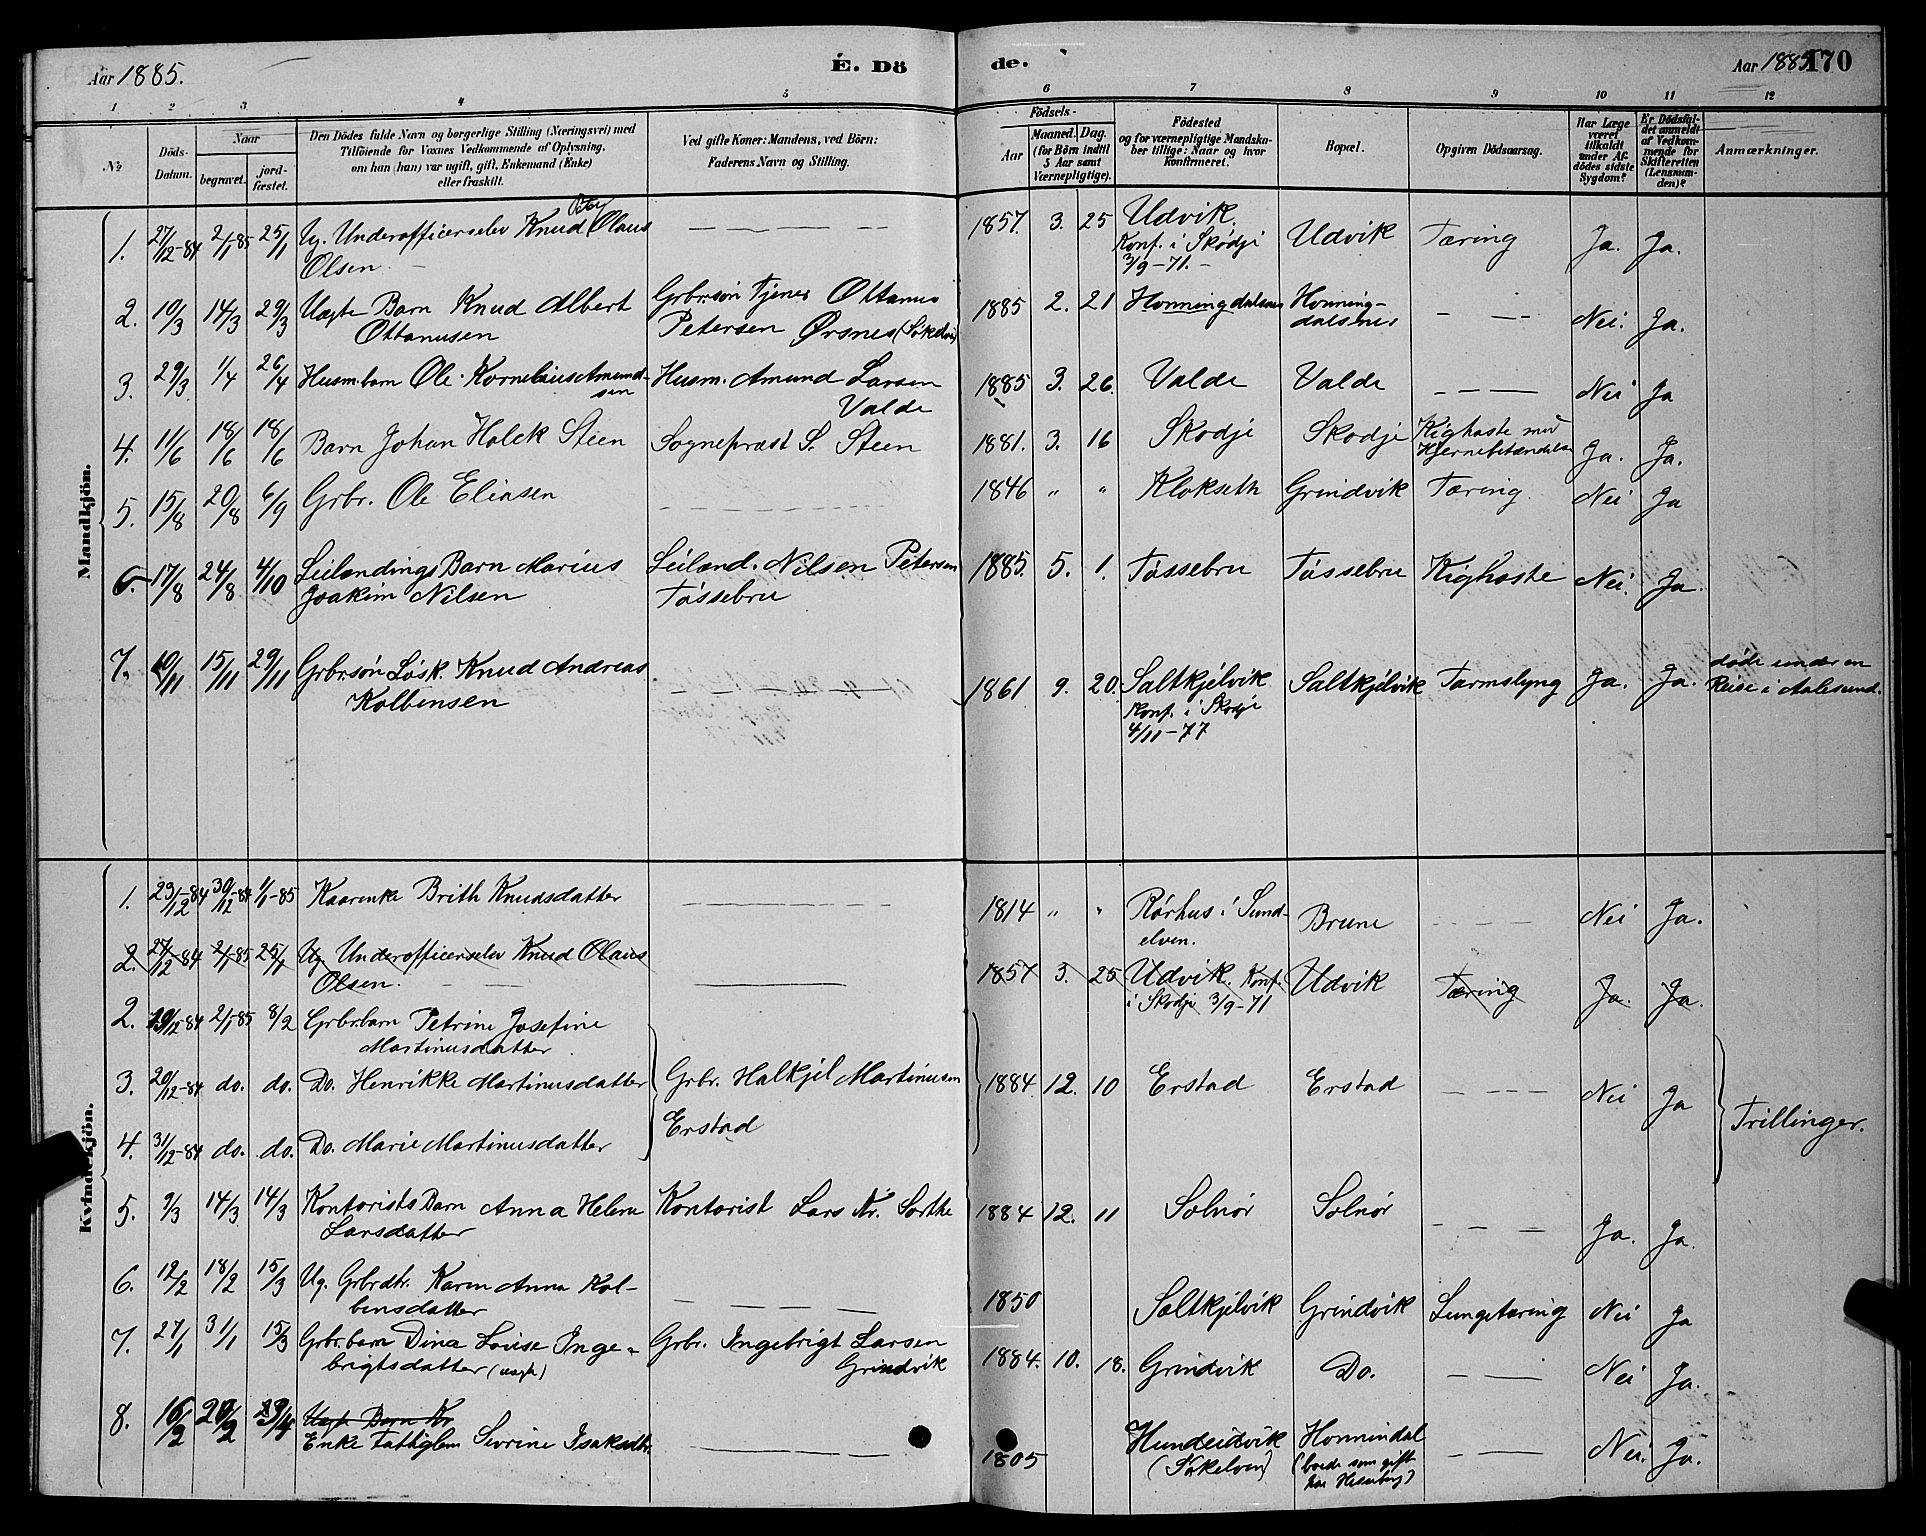 Aar 1885.
E. Dö
de.
Aar 1885.
170
1 2 3 4 5 6 7 8 9 10 11 12
No
Döds-Datum.
Naar
begravet.
jord-fæstet.
Den Dödes fulde Navn og borgerlige Stilling (Næringsvei) med
Tilföiende for Voxnes Vedkommende af Oplysning,
om han (hun) var ugift, gift, Enkemand (Enke)
eller fraskilt.
Ved gifte Koner: Mandens, ved Börn:
Faderens Navn og Stilling.
Födsels-
Aar
Maaned. Dag.
(for Börn indtil
5 Aar samt
Værnepligtige).
Födested
og for værnepligtige Mandska-
ber tillige: Naar og hvor
konfirmeret.
Bopæl.
Opgiven Dödsaarsag.
Har Læge
været
tilkaldt
under Af-
dödes sidste
Sygdom?
Er Dödsfal-
det anmeldt
af Vedkom-
mende for
Skifteretten
(Lensman-
den)?
Anmærkninger.
Mandkjön.
1. 27/12-84 2/1-85 25/1 Ug. Underofficerselev Knud Olaus
Olsen
1857. 3. 25 Udvik.
Konf. i Skodje
3/9-71.
Udvik Tæring Ja. Ja.
2. 10/3 14/3 29/3 Uægte Barn Knud Albert
Ottanusen
Grbrsön Tjener Ottanus
Petersen Ørsnes (Sökelven)
1885 2. 21 Honningdalsnes Honning-
dalsnes
Nei. Ja.
3. 29/3 1/4 26/4 Husm.barn Ole Kornelius Amund-
sen
Husm. Amund Larsen
Valde
1885 3. 26. Valde Valde Nei Ja
4. 11/6 18/6 18/6 Barn Johan Holck Steen Sogneprest S. Steen 1881. 3. 16 Skodje Skodje Kighoste med
Hjernebetændelse
Ja. Ja.
5. 15/8 20/8 6/9 Grbr. Ole Eliasen 1846 " " Klokseth Grindvik Tæring. Nei Ja
6. 17/8 24/8 4/10 Leilændings Barn Marius
Joakim Nilsen
Leilænd. Nilsen Petersen
Tössebru
1885. 5. 1. Tössebru Tössebru Kighoste Nei. Ja.
7. 10/11 15/11 29/11 Grbrsön Lösk. Knud Andreas
Kolbensen
1861 9. 20. Saltkjelvik
Konf. i Skodje
4/11-77
Saltkjelvik Tarmslyng Ja. Ja. döde under en
Reise i Aalesund.
Kvindekjön.
1. 23/12-84 30/12-84 1/1-85 Kaarenke Brith Knudsdatter 1814 " " Rörhus i Sund-
elven.
Brune Nei Ja.
2. 27/12-84 2/1-85 25/1 Ug. Underofficerselev Knud Olaus
Olsen.
1857 3. 25 Udvik. Konf.
i Skodje 3/9-71
Udvik Tæring Ja. Ja.
2. 19/12-84 2/1-85 8/2 Grbr.barn Petrine Josefine
Martinusdatter
3. 20/12-84 do. do. Do. Henrikke Martinusdatter
4. 31/12-84 do. do. Do. Marie Martinusdatter
Grbr. Halkjel Martinusen
Erstad
1884 12. 10 Erstad Erstad Nei Ja Trillinger.
5. 9/3 14/3 14/3 Kontorists Barn Anna Helene
Larsdatter
Kontorist Lars Kr. Sorthe
1884 12. 11 Solnör Solnör Ja. Ja.
6. 12/2 18/2 15/3 Ug. Grbrdtr. Karen Anna Kol-
bensdatter
1850 Saltkjelvik Grindvik Lungetæring Nei Ja
7. 27/1 31/1 15/3 Grbr.barn Dina Louise Inge-
brigtsdatter (uægte)
Grbr. Ingebrigt Larsen
Grindvik
1884. 10. 18. Grindvik Do. Nei Ja.
8. 16/2 20/2 Uægte Barn Kr
Enke Fattiglem Sivrine Isaksdtr.
1805 Hundeidvik
(Sökelven)
Honnindal
(boede som gift
Nei. Ja.